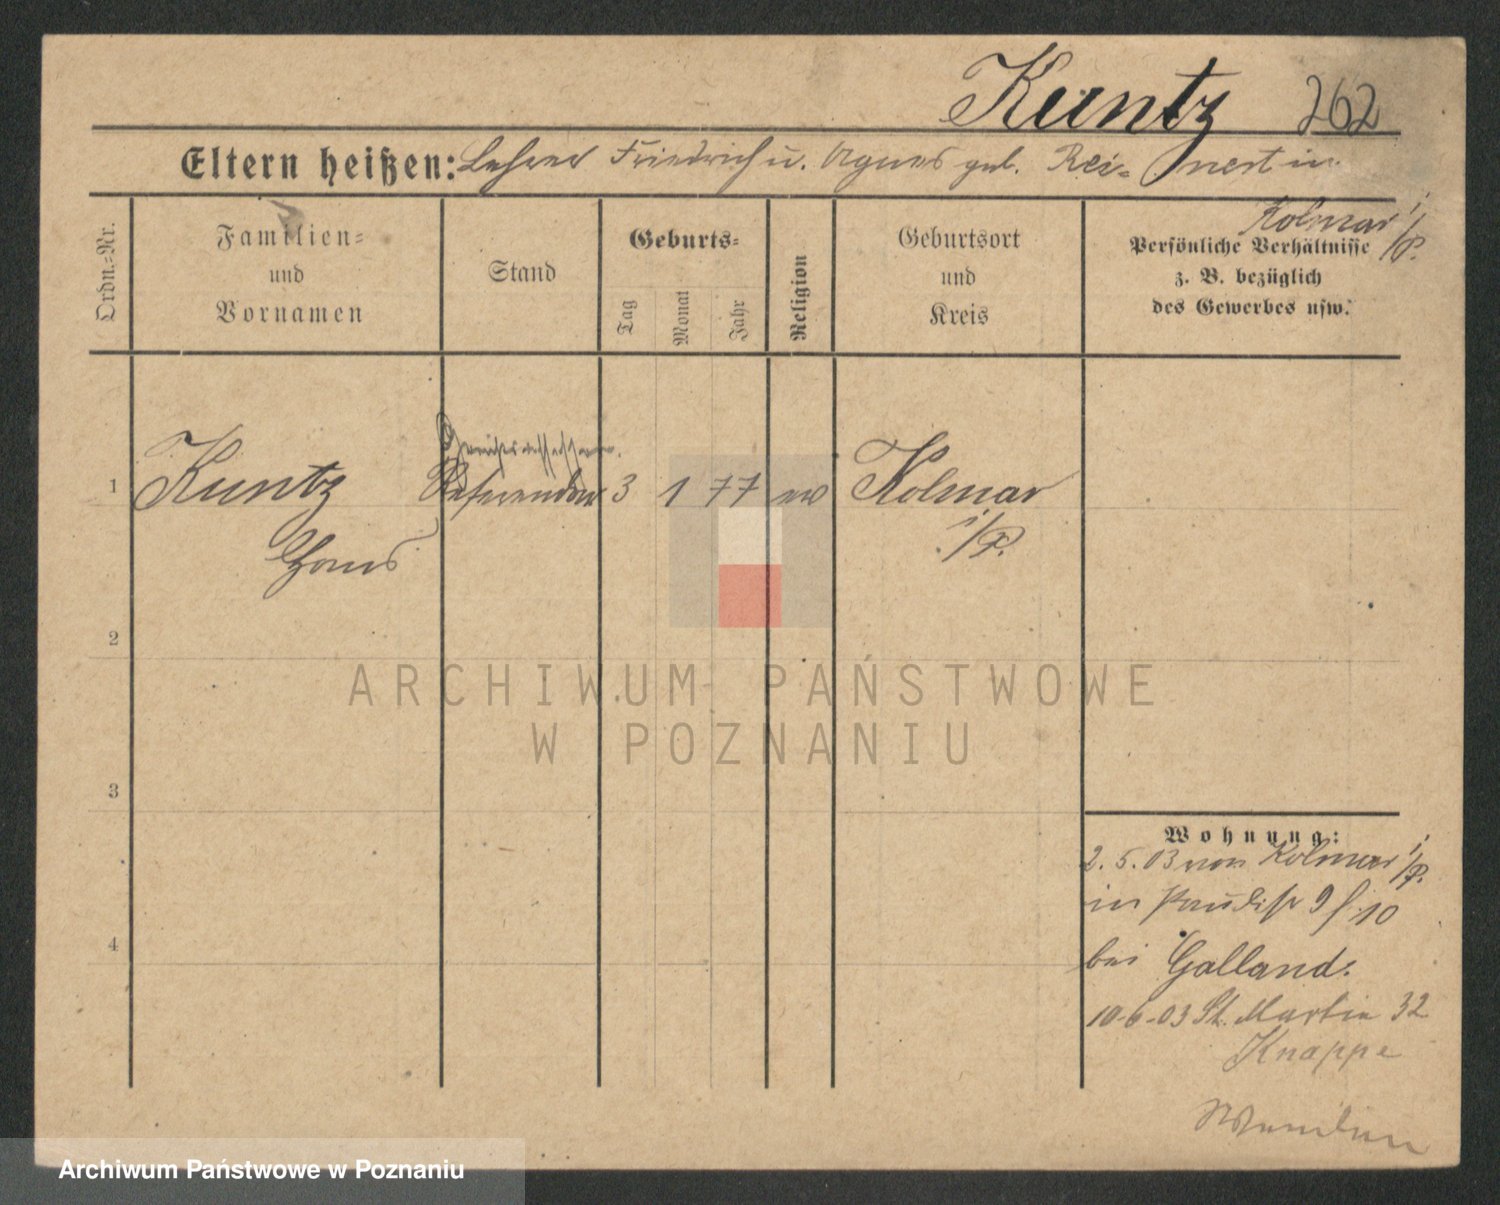 Kuntz 262
Eltern heißen: Lehrer Friedrich u. Agnes geb. Rei= nert in
Kolmar i/P.
Ordn.=Nr.
Familien=
und
Vornamen
Stand
Geburts=
Tag
Monat
Jahr
Religion
Geburtsort
und
Kreis
Persönliche Verhältnisse
z. B. bezüglich
des Gewerbes usw.
Gerichtsassessor
1 Kuntz Referendar 3 1 77 ev Kolmar
i/P.
Hans
2
3
4
Wohnung:
2.5.03 von Kolmar i/P.
in 9/10
bei Galland.
10-6-03 St. Martin 32
Knappe
Wenden
ARCHIWUM PAŃSTWOWE
W POZNANIU
Archiwum Państwowe w Poznaniu